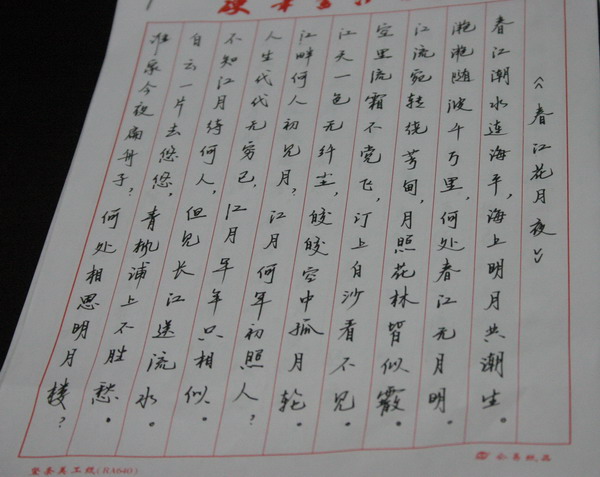 《春江花月夜》
春江潮水连海平,海上明月共潮生。
滟滟随波千万里,何处春江无月明。
江流宛转绕芳甸,月照花林皆似霰。
空里流霜不觉飞,汀上白沙看不见。
江天一色无纤尘,皎皎空中孤月轮。
江畔何人初见月?江月何年初照人?
人生代代无穷已,江月年年只相似。
不知江月待何人,但见长江送流水。
白云一片去悠悠,青枫浦上不胜愁。
谁家今夜扁舟子?何处相思明月楼?